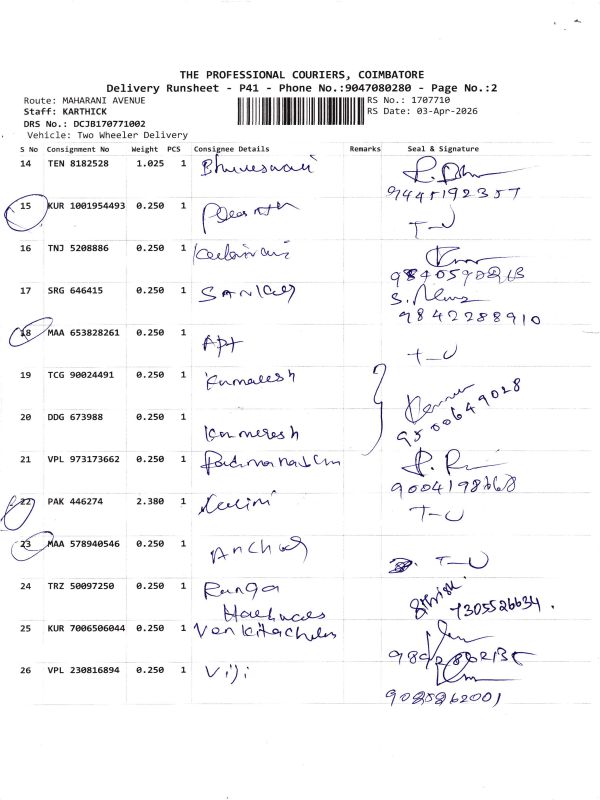 THE PROFESSIONAL COURIERS, COIMBATORE
Delivery Runsheet - P41 - Phone No.:9047080280 - Page No.:2
Route: MAHARANI AVENUE RS No.: 1707710
Staff: KARTHICK RS Date: 03-Apr-2026
DRS No.: DCJB170771002
Vehicle: Two Wheeler Delivery
S No Consignment No Weight PCS Consignee Details Remarks Seal & Signature
14 TEN 8182528 1.025 1 Bhuneswari
9445192357
15 KUR 1001954493 0.250 1 T-U
16 TNJ 5208886 0.250 1
17 SRG 646415 0.250 1 Sankar
9842288910
18 MAA 653828261 0.250 1 APt T-U
19 TCG 90024491 0.250 1 Kamalesh
9500649028
20 DDG 673988 0.250 1 Kamaresh
21 VPL 973173662 0.250 1 Padmanaban
22 PAK 446274 2.380 1 T-U
23 MAA 578940546 0.250 1 T-U
24 TRZ 50097250 0.250 1 Ranga
7305526634.
25 KUR 7006506044 0.250 1
26 VPL 230816894 0.250 1 Viji